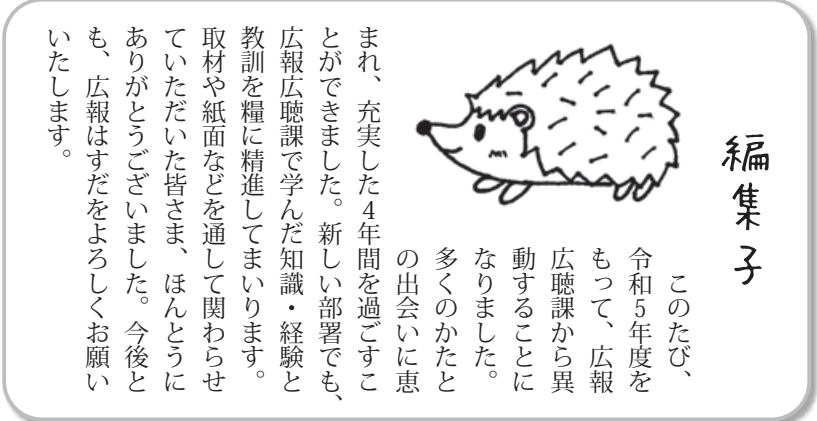 編集子
このたび、
令和5年度を
もって、広報
広聴課から異
動することに
なりました。
多くのかたと
の出会いに恵
まれ、充実した4年間を過ごすこ
とができました。新しい部署でも、
広報広聴課で学んだ知識・経験と
教訓を糧に精進してまいります。
取材や紙面などを通して関わらせ
ていただいた皆さま、ほんとうに
ありがとうございました。今後と
も、広報はすだをよろしくお願い
いたします。